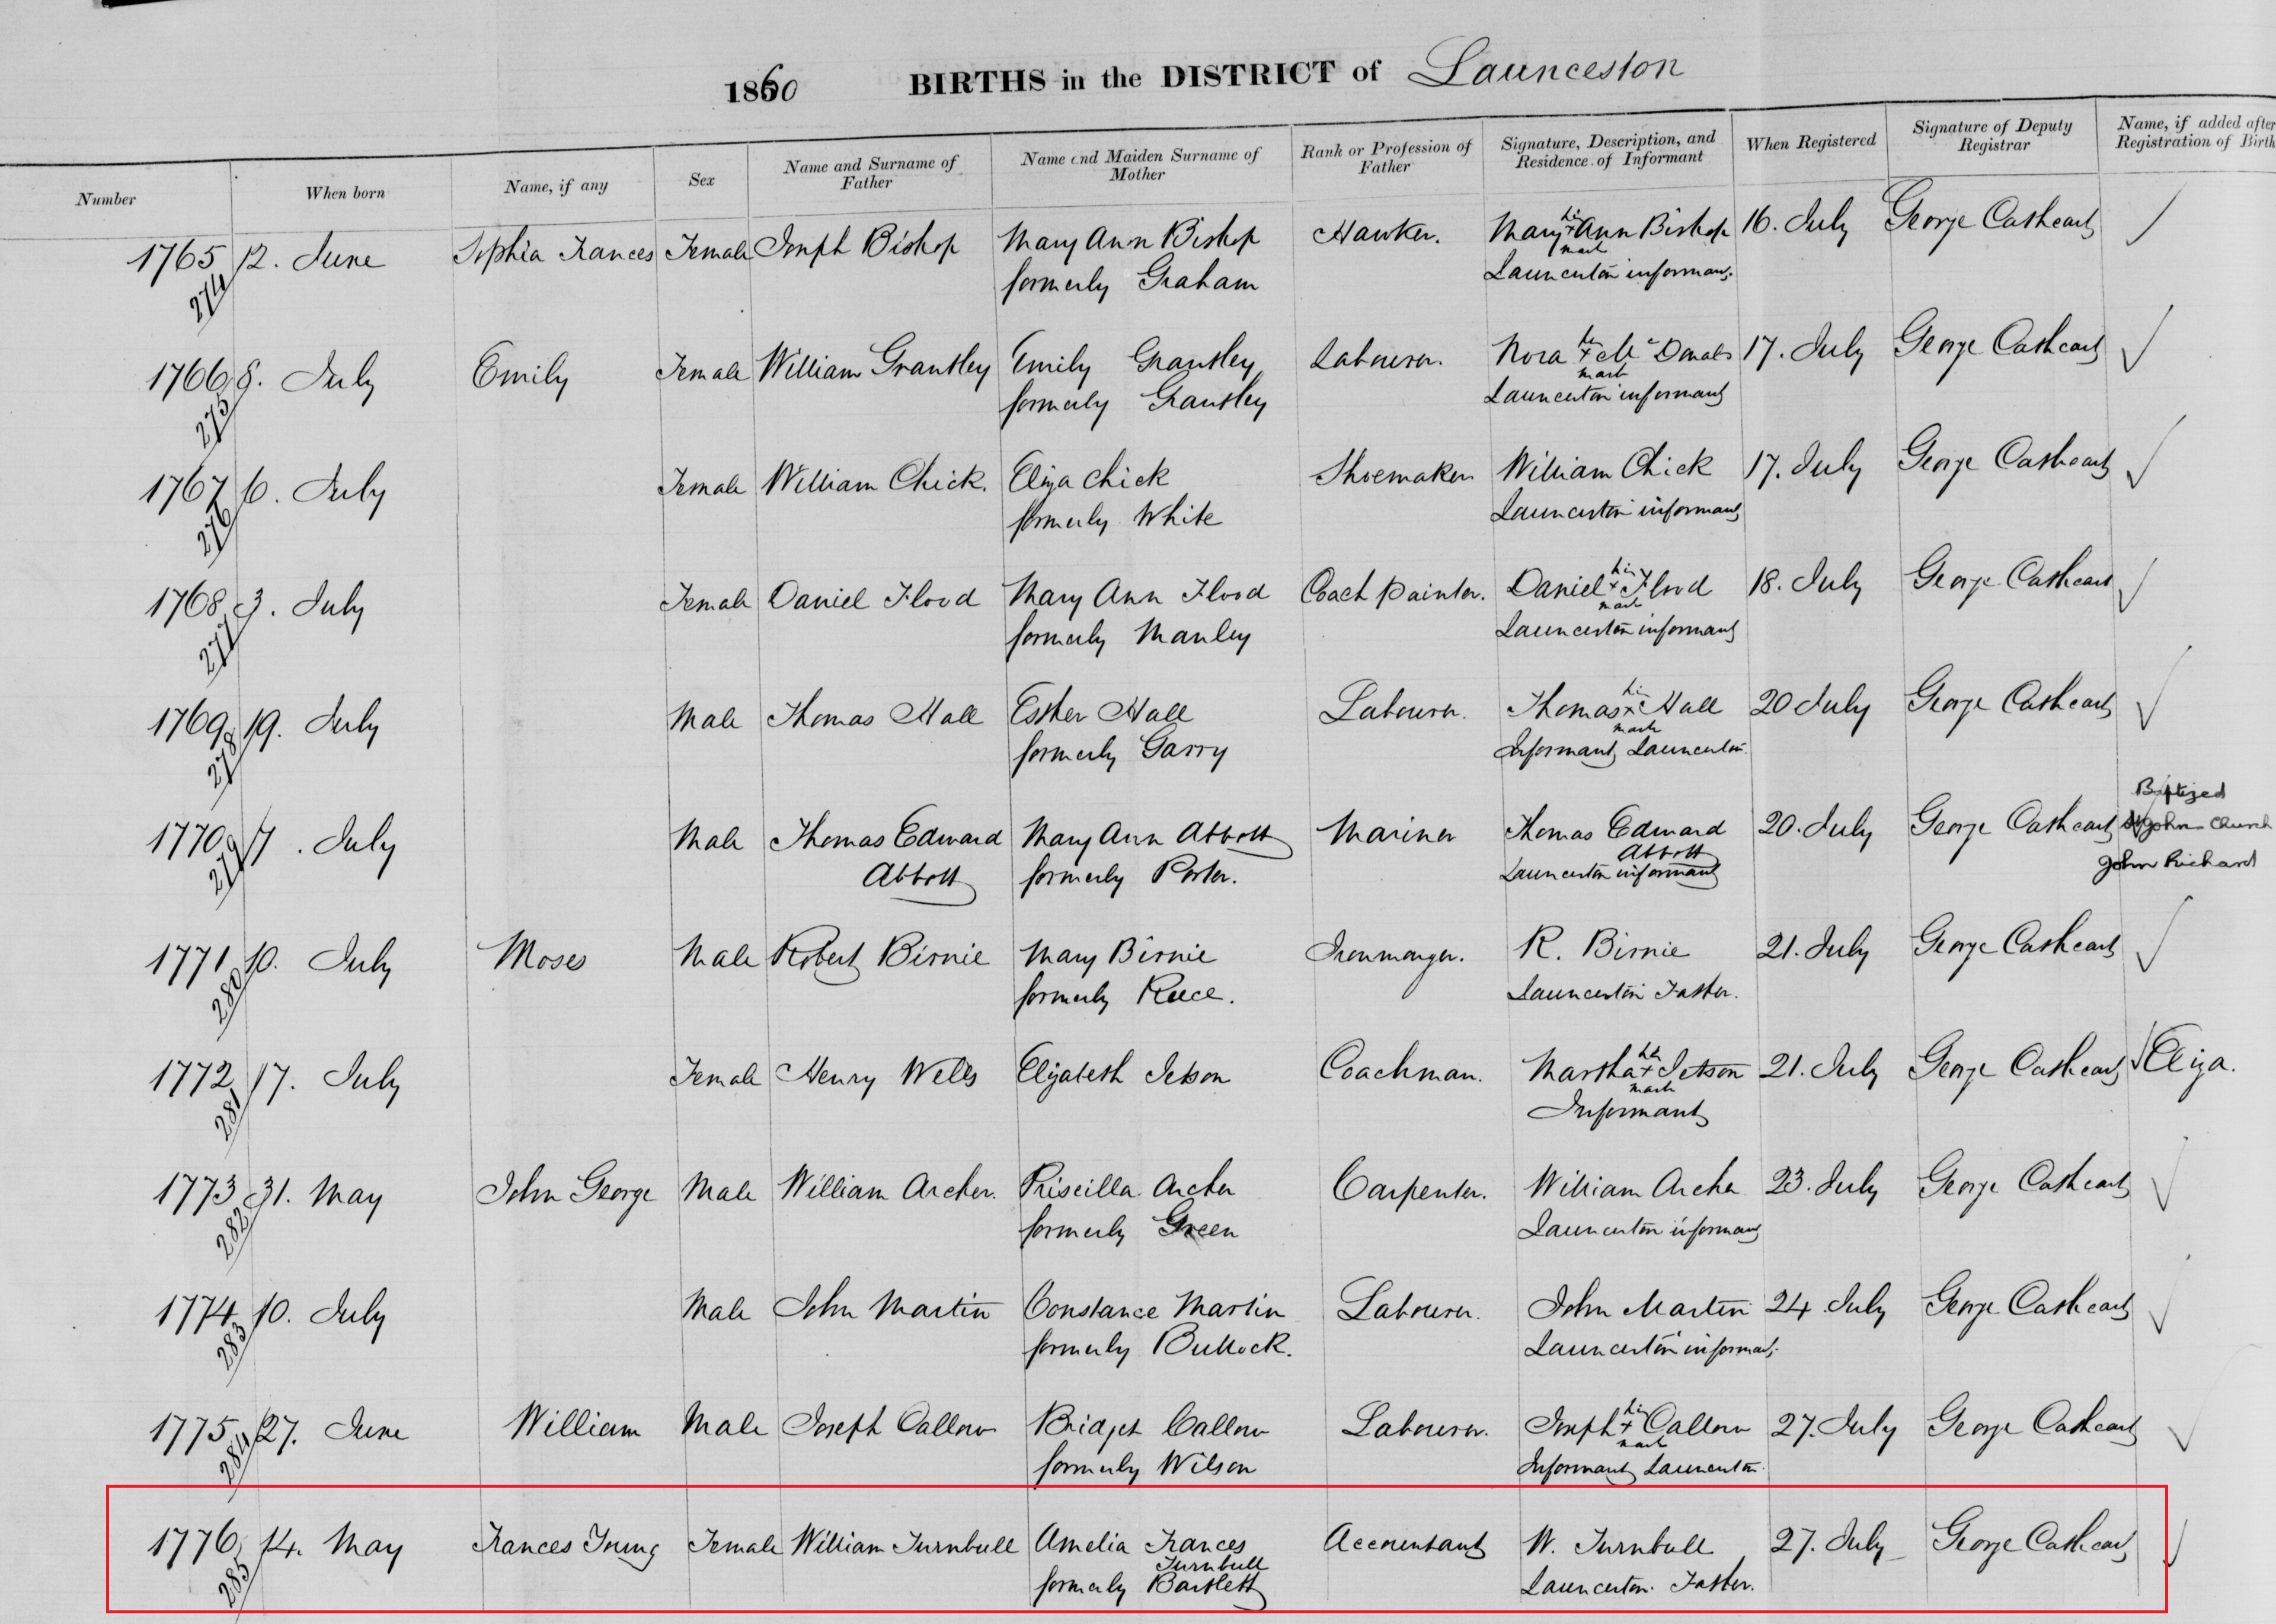 1860 BIRTHS in the DISTRICT of Launceston
Number
When born
Name, if any
Sex
Name and Surname of Father
Name and Maiden Surname of Mother
Rank or Profession of Father
Signature, Description, and Residence of Informant
When Registered
Signature of Deputy Registrar
Name, if added after Registration of Birth
1765 12. June Sophia Frances Female Joseph Bishop Mary Ann Bishop Hawker. Mary x Ann Bishop 16. July George Cathcart
274 formerly Graham mark Launceston informant.
1766 8. July Emily Female William Grantley Emily Grantley Labourer. Nora x Mc Donald 17. July George Cathcart
275 formerly Grantley mark Launceston informant
1767 6. July Female William Chick. Eliza Chick Shoemaker William Chick 17. July George Cathcart
276 formerly White Launceston informant
1768 3. July Female Daniel Flood Mary Ann Flood Coach Painter. Daniel x Flood 18. July George Cathcart
277 formerly Manley mark Launceston informant
1769 19. July Male Thomas Hall Esther Hall Labourer. Thomas x Hall 20 July George Cathcart
278 formerly Garry mark Informant Launceston
1770 7. July Male Thomas Edward Abbott Mary Ann Abbott Mariner Thomas Edward Abbott 20. July George Cathcart Baptized St John Church John Richard
279 formerly Porter. Launceston informant
1771 10. July Moses Male Robert Birnie Mary Birnie Ironmonger. R. Birnie 21. July George Cathcart
280 formerly Reece. Launceston Father.
1772 17. July Female Henry Wells Elizabeth Jetson Coachman. Martha x Jetson 21. July George Cathcart Eliza.
281 mark Informant
1773 31. May John George Male William Archer. Priscilla Archer Carpenter. William Archer 23. July George Cathcart
282 formerly Green Launceston informant
1774 10. July Male John Martin Constance Martin Labourer. John Martin 24 July George Cathcart
283 formerly Bullock. Launceston informant.
1775 27. June William Male Joseph Callow Bridget Callow Labourer. Joseph x Callow 27. July George Cathcart
284 formerly Wilson mark Informant Launceston
1776 14. May Frances Young Female William Turnbull Amelia Frances Turnbull Accountant W. Turnbull 27. July George Cathcart
285 formerly Bartlett Launceston. Father.